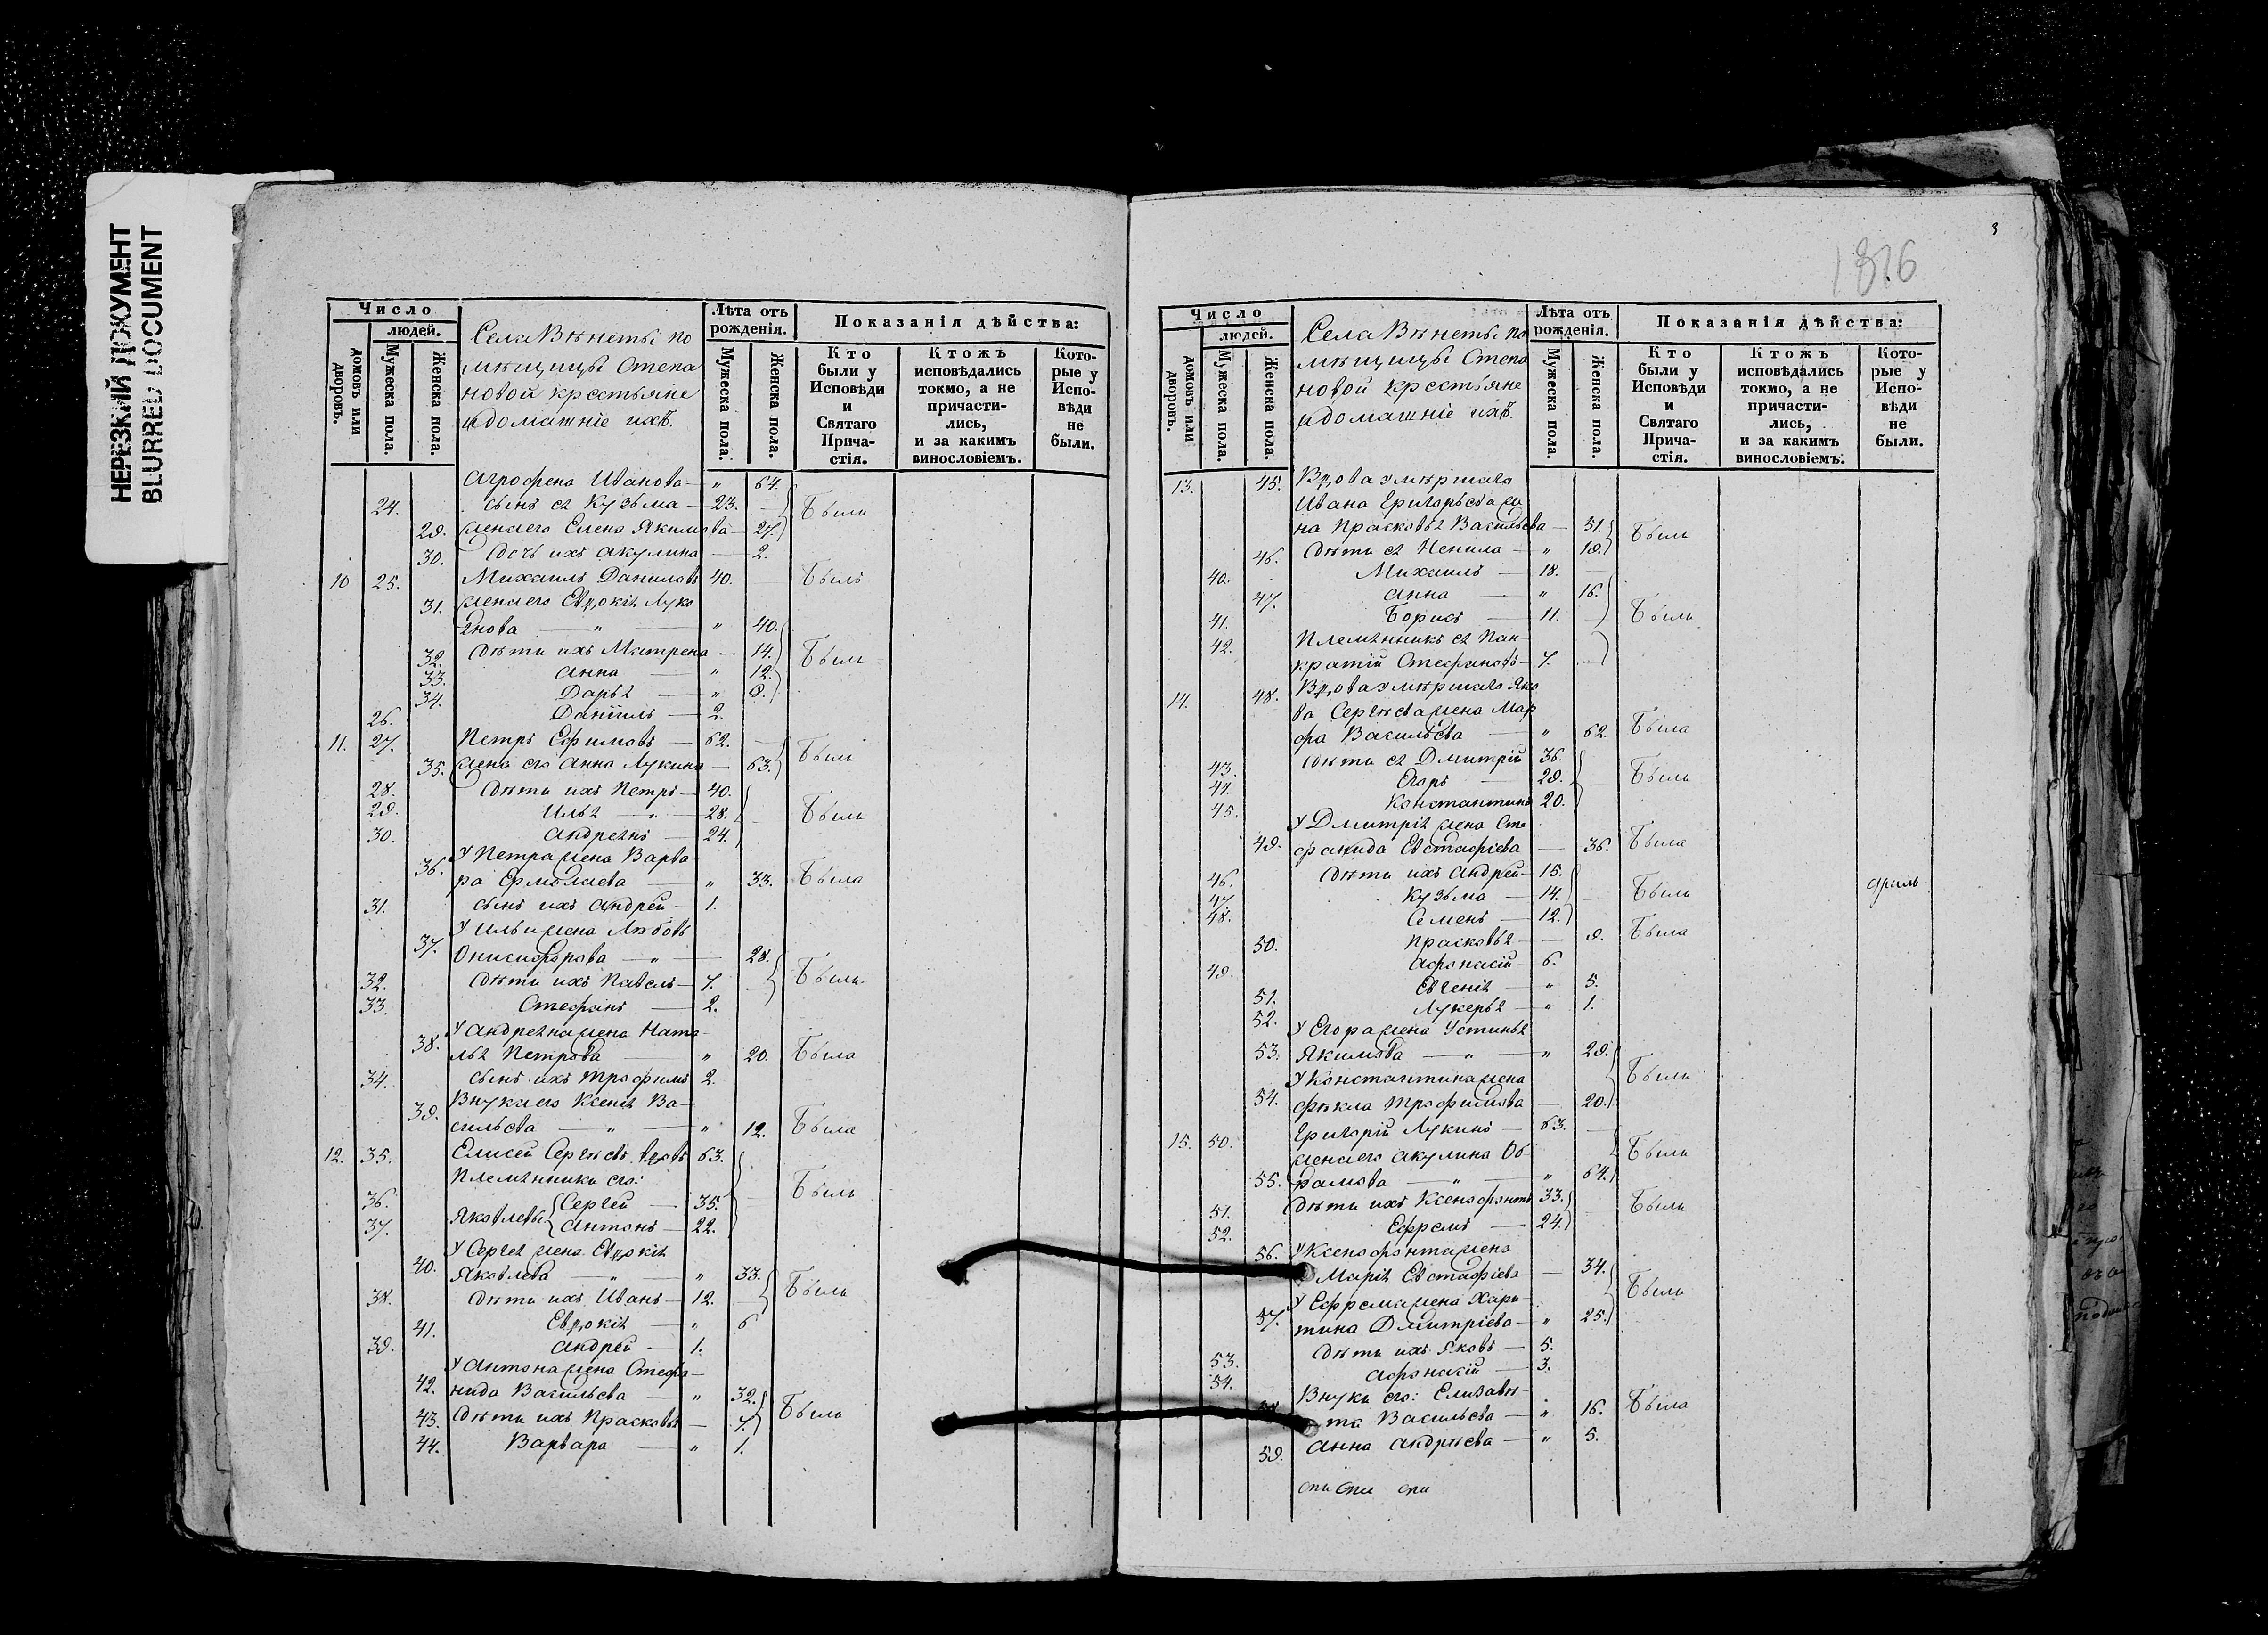 НЕРЕЗКИЙ ДОКУМЕНТ
BLURRED DOCUMENT
Число
людей.
домовъ или дворовъ.
Мужеска пола.
Женска пола.
Села Вѣнеты по
мѣщицы Степа
новой крестьяне
и домашніе ихъ.
Лѣта отъ рожденія.
Мужеска пола.
Женска пола.
Показанія дѣйства:
Кто были у Исповѣди и Святаго Прича-стія.
Ктожъ исповѣдались токмо, а не причасти-лись, и за какимъ винословіемъ.
Кото-рые у Испо-вѣди не были.
Агрофена Иванова — " 64.
24. сынъ ея Кузьма — 23. — Были
29. жена его Елена Якимова — 27.
30. Дочь ихъ Акулина — 2.
10 25. Михаилъ Даниловъ 40. Былъ
31. жена его Евдокія Лукя
нова — " — " 40.
32. Дѣти ихъ Матрена — 14. Были
33. Анна — " 12.
34. Дарья — " 9.
26. Даніилъ — 2.
11. 27. Петръ Ефимовъ — 62. —
35. жена его Анна Лукина — 63. Были
28. Дѣти ихъ Петръ — 40.
29. Илья — " — 28. Были
30. Андреянъ — 24.
У Петра жена Варва
36. ра Ермолаева — " 33. Была
31. сынъ ихъ Андрей — 1.
У Ильи жена Любовь
37. Онисифорова — " — 28.
32. Дѣти ихъ Павелъ — 7. Были
33. Стефанъ — 2.
У Андреяна жена Ната-
38. лья Петрова — " 20. Была
34. сынъ ихъ Трофимъ 2.
Внука его Ксенія Ва-
39. сильева — " — " 12. Была
12. 35. Елисей Сергѣевъ вдовъ 63.
Племянники его: Были
36. Яковлевы Сергей — 35.
37. Антонъ — 22.
У Сергея жена Евдокія
40. Яковлева — " — " 33.
38. Дѣти ихъ Иванъ — 12. Были
41. Евдокія — " 6
39. Андрей — 1.
У Антона жена Стефа-
42. нида Васильева — " 32.
43. Дѣти ихъ Прасковья — 7. Были
44. Варвара — " 1.
3
1826
Число
людей.
домовъ или дворовъ.
Мужеска пола.
Женска пола.
Села Вѣнеты по
мѣщицы Степа
новой крестьяне
и домашніе ихъ.
Лѣта отъ рожденія.
Мужеска пола.
Женска пола.
Показанія дѣйства:
Кто были у Исповѣди и Святаго Прича-стія.
Ктожъ исповѣдались токмо, а не причасти-лись, и за какимъ винословіемъ.
Кото-рые у Испо-вѣди не были.
13. 45. Вдова умѣршаго
Ивана Григорьева же
на Прасковья Васильева — 51. Были
46. Дѣти ея Ненила — " 19.
40. Михаилъ — 18. —
47. Анна — " 16.
41. Борисъ — 11. — Были
42. Племянникъ ея Пан-
кратій Стефановъ — 7.
14. 48. Вдова умѣршаго Яко
ва Сергѣева жена Мар
фа Васильева — " 62. Была
43. Дѣти ея Дмитрій 36.
44. Егоръ — 29. Были
45. Константинъ 20.
У Дмитрія жена Сте
49. фанида Евстафіева — 36. Была
46. Дѣти ихъ Андрей — 15.
47. Кузьма — 14. Были
48. Семенъ — 12.
50. Прасковья — — 9. Была
49. Афонасій — 6.
51. Евгенія — " 5.
52. Лукерья — " 1.
У Егора жена Устинья
53. Якимова — " — " 29.
У Константина жена Были
54. Фѣкла Трофимова — 20.
15. 50. Григорій Лукинъ — 63. —
жена его Акулина Об Были
55. рамова — " — " 64.
51. Дѣти ихъ Ксенофонтъ 33. Были
52. Ефремъ — 24.
56. У Ксенофонта жена
Марія Евстафіева — 34.
У Ефрема жена Хари- Были
57. тина Дмитріева — " 25.
53. Дѣти ихъ Яковъ — 5.
54. Афонасій — 3.
Внуки его: Елизавѣ-
та Васильева — " 16. Была
59. Анна Андрѣева — " 5.